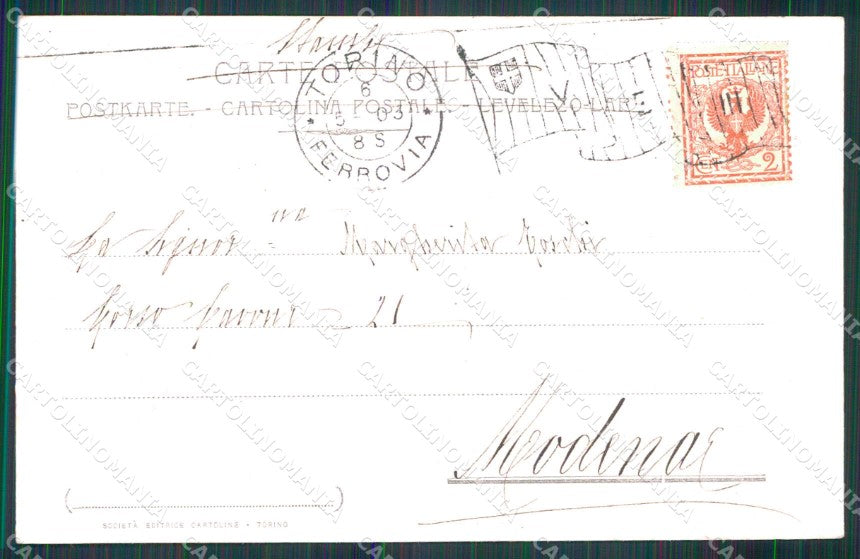 Stampe
CARTE POSTALE
POSTKARTE. - CARTOLINA POSTALE - LEVELEZO-LAP.
TORINO
6
5 03
8 S
* FERROVIA *
POSTE ITALIANE
CENT 2
La Signorina Margherita
Corso Cavour 21
Modena
SOCIETÀ EDITRICE CARTOLINE - TORINO
CARTOLINOMANIA